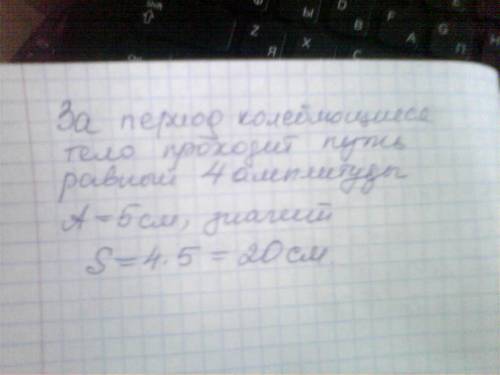 За период колеблющиеся
тело проходит путь
равный 4 амплитуды
A = 5 см, значит
S = 4 · 5 = 20 см.